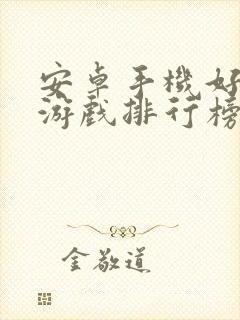 安卓手機好
游戲排行榜
金敬道